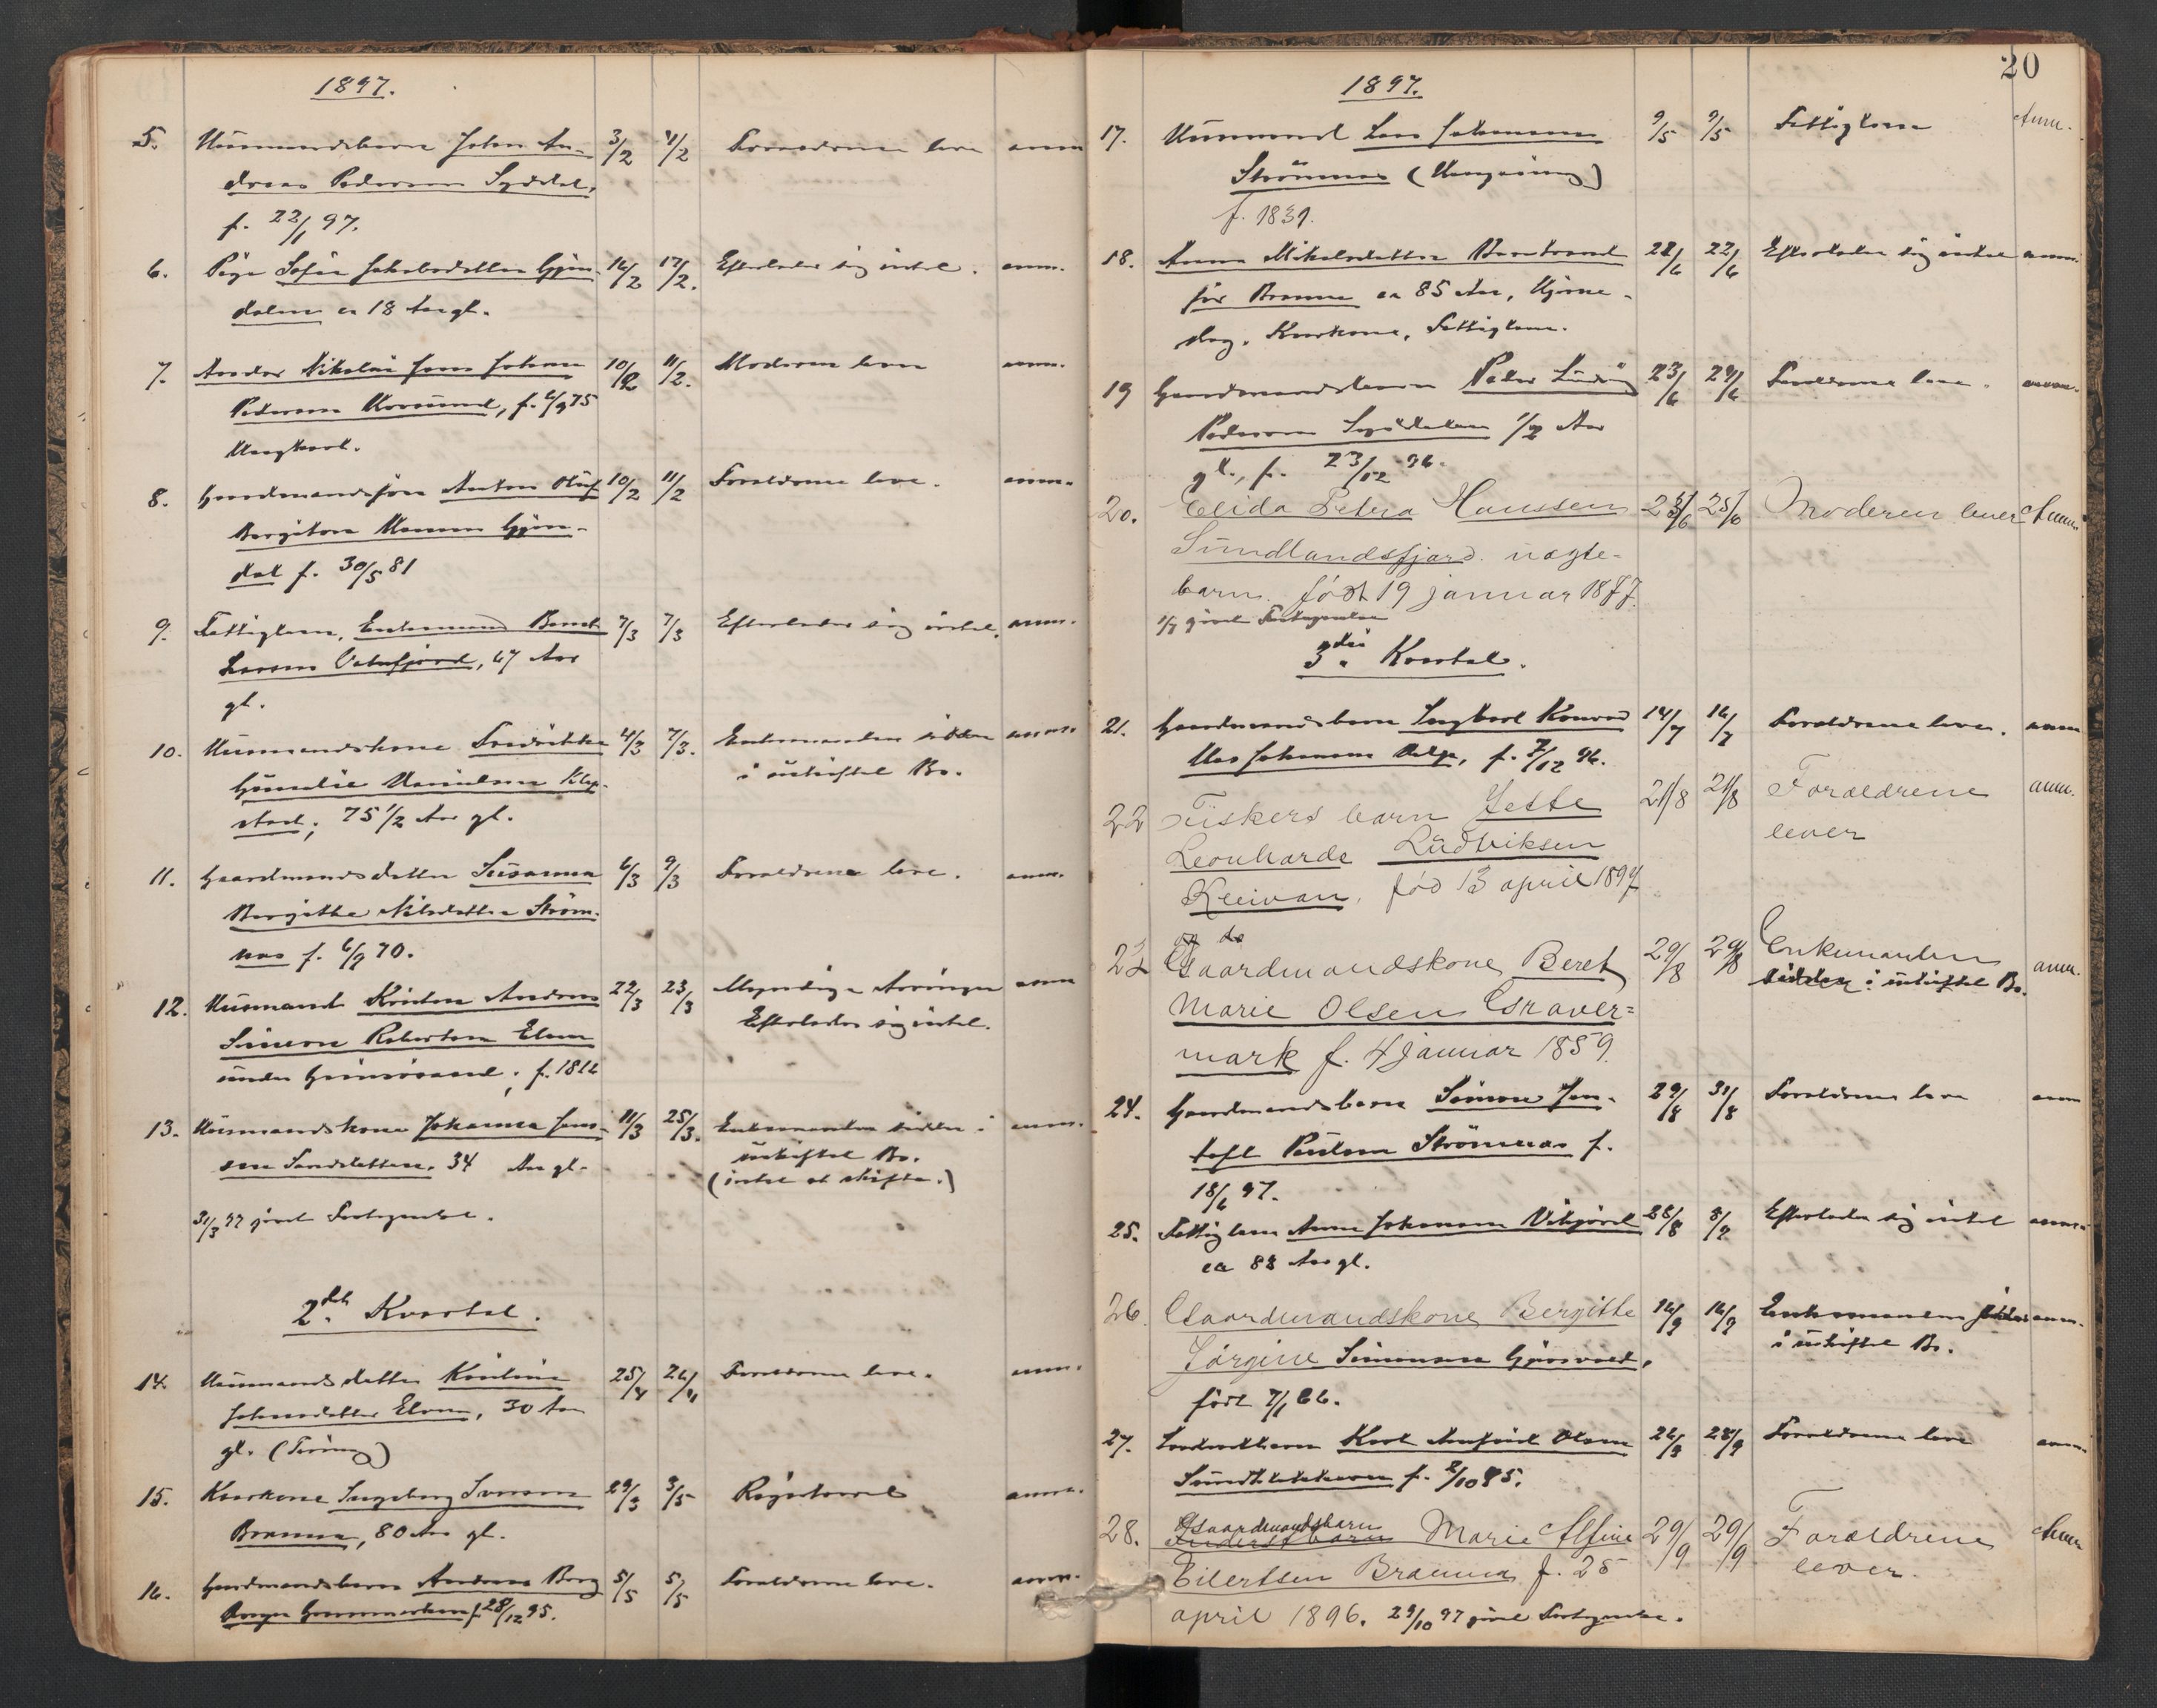 1897.
5. Husmandsbarn Johan An- 3/2 4/2 Forældrene leve anm
dreas Pedersen Syddal,
f. 22/1 97.
6. Pige Sofie Jakobsdatter Gjim- 16/2 17/2. Efterlader sig intet. anm.
dalen ca 18 Aar gl.
7. Nikolai Jens Johan 10/2 11/2. Moderen lever anm.
Pedersen , f. 6/9 75
Ungkarl.
8. Gaardmandssøn Anton Oluf 10/2 11/2 Forældrene leve. anm.
Hansen Gjim-
dal f. 30/5 81
9. Fattiglem, Enkemand Bernt 7/3 7/3 Efterlader sig intet. anm.
Larsen , 67 Aar
gl.
10. Husmandskone Fredrikke 4/3 7/3. Enkemanden sidder anm.
Danielsen Klep-
stad; 75 1/2 Aar gl. i uskiftet Bo.
11. Gaardmandsdatter Susanna 6/3 9/3 Forældrene leve. anm.
Bergitte Nilsdatter Strøm-
næs f. 6/9 70.
12. Husmand Kristen Andreas 22/3 23/3 Myndige Arvinger anm
Simon Robertsen Elven Efterlader sig intet.
under Gimsøsand; f. 1812
13. Husmandskone Johanna Jens- 11/3 25/3. Enkemanden sidder i anm.
sen Sandsletten. 34 Aar gl. uskiftet Bo.
(intet at skifte.)
31/3 97 gjort Fortegnelse.
2det Kvartal.
14. Husmandsdatter Kristine 25/4 26/4 Forældrene leve. anm.
Johnsdatter Elven, 30 Aar
gl. (Tæring)
15. Kaarkone Ingeborg Svensen 29/3 3/5 anm.
Brenna, 80 Aar gl.
16. Gaardmandsbarn Andreas Berg 5/5 5/5 Forældrene leve. anm.
f. 28/12 95.
20
1897.
17. Husmand Lars Johannesen 9/5 9/5 Fattiglem Anm.
Strømnæs (Hengning)
f. 1831.
18. Anna Mikalsdatter 21/6 22/6 Efterlader sig intet anm.
før Brenna ca 85 Aar, Hjerne-
slag. Kaarkone, Fattiglem.
19 Gaardmandsbarn Peder Ludvig 23/6 24/6 Forældrene leve. anm.
Pedersen Syddalen 1/2 Aar
gl., f. 23/12 96.
20. Elida Petra Hanssen 25/6 25/6 Moderen lever Anm.
Sundlandsfjord. uægte-
barn. født 19 januar 1877.
1/7 gjort Fortegnelse
3die Kvartal.
21. Gaardmandsbarn Ingbert Konrad 14/7 16/7 Forældrene leve. anm
Johansen Delp, f. 7/12 96.
22 Fiskers barn Jette 21/8 21/8 Forældrene anm.
Leonharde Ludviksen lever
Kleivan, fød 13 april 1897
23 Gaardmandskone Beret 29/8 29/8 Enkemanden anm.
Marie Olsen Graver= sidder i uskiftet Bo.
mark f. 4 januar 1859.
24. Gaardmandsbarn Simon Jen- 29/8 31/8 Forældrene leve anm
toft Paulsen Strømnæs f.
18/6 97.
25. Fattiglem Anne Johansen Vikjord 28/8 8/9 Efterlader sig intet anm.
ca 88 Aar gl.
26. Gaardmandskone Bergitte 14/9 16/9 Enkemanden sidder anm.
Jørgine Simonsen , i uskiftet Bo.
født 7/1 66.
27. Karl Olsen 26/9 28/9 Forældrene leve anm.
f. 2/10 95.
28. Gaardmandsbarn
Marie Alfine 29/9 29/9 Forældrene Anm
Eilertsen Brenna f. 25 lever.
april 1896. 29/10 97 gjort Fortegnelse.